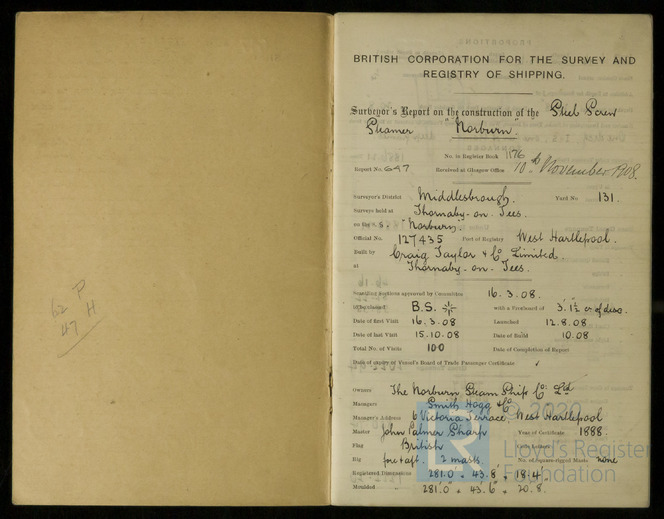 62 P
47 H
BRITISH CORPORATION FOR THE SURVEY AND
REGISTRY OF SHIPPING.
Surveyor's Report on the construction of the Steel Screw
Steamer "Norburn".
No. in Register Book 1176
Report No. 647 Received at Glasgow Office 10th November 1908.
Surveyor's District Middlesbrough. Yard No. 131.
Surveys held at Thornaby-on-Tees.
on the S.S. "Norburn".
Official No. 127435 Port of Registry West Hartlepool.
Built by Craig Taylor & Co Limited.
at Thornaby-on-Tees.
Scantling sections approved by Committee 16.3.08.
to be classed B.S. with a Freeboard of 3' 1½ cr of disc.
Date of first Visit 16.3.08 Launched 12.8.08
Date of last Visit 15.10.08 Date of Build 10.08
Total No. of Visits 100 Date of Completion of Report
Date of expiry of Vessel's Board of Trade Passenger Certificate
Owners The Norburn Steam Ship Co: Ltd
Managers Smith Hogg & Co
Manager's Address 6 Victoria Terrace, West Hartlepool
Master John Palmer Sharp Year of Certificate 1888.
Flag British Code Letters
Rig fore & aft. 2 masts. No. of Square-rigged Masts none
Registered Dimensions 281.0 × 43.8 × 18.4
Moulded 281'.0" × 43'.6" × 20'.8
© 2020
Lloyd's Register
Foundation
LR